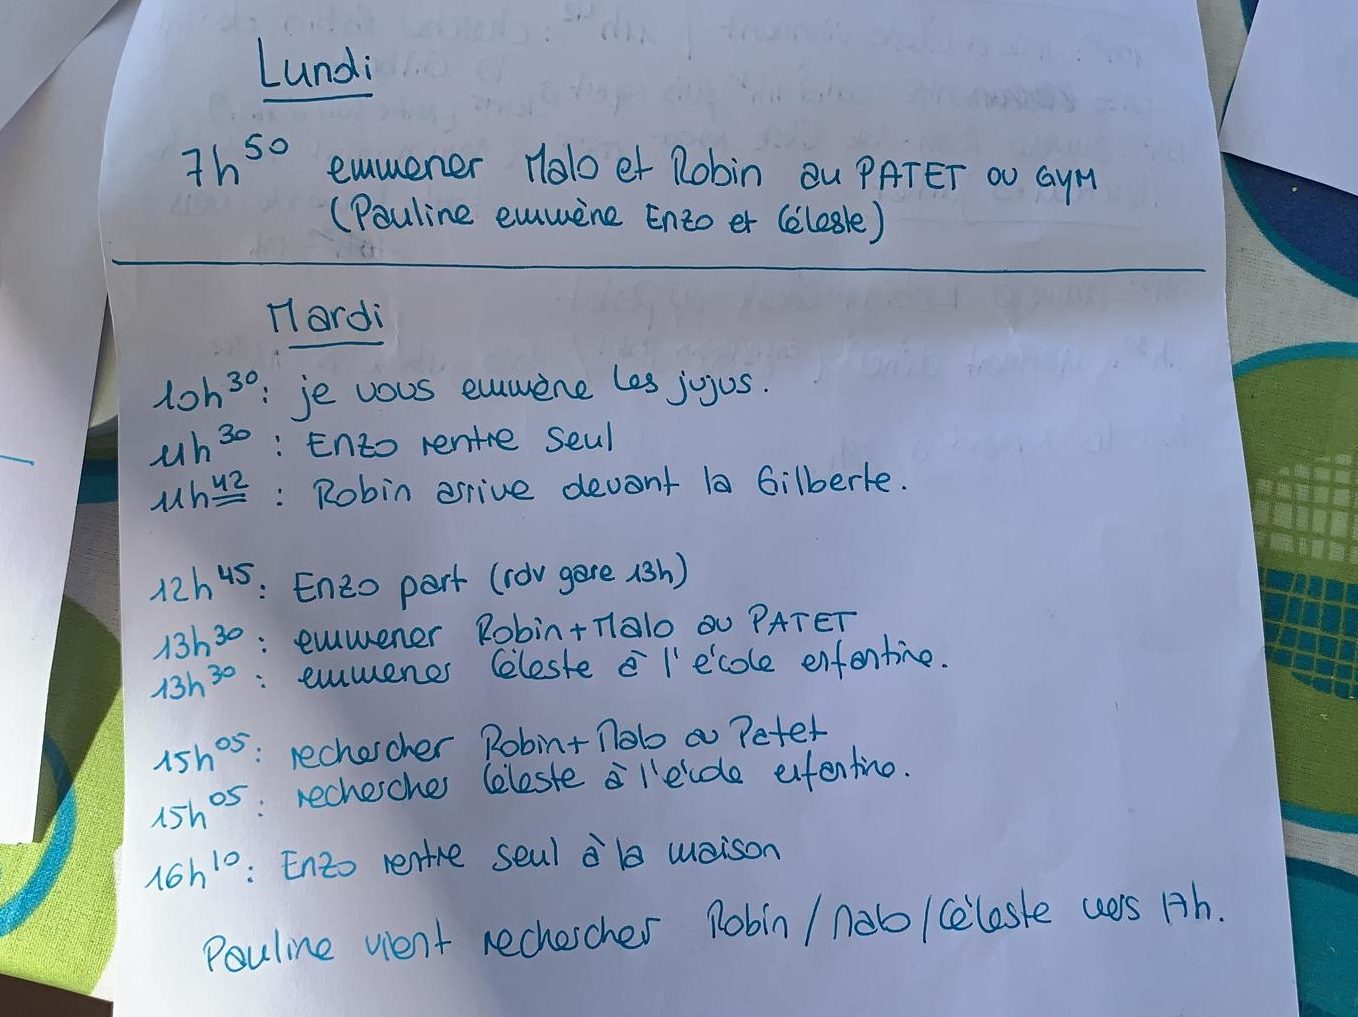 Lundi
7h50 emmener Malo et Robin au PATET ou GYM
(Pauline emmène Enzo et Céleste)
Mardi
10h30: je vous emmène les jujus.
11h30 : Enzo rentre seul
11h42 : Robin arrive devant la Gilberte.
12h45: Enzo part (rdv gare 13h)
13h30 : emmener Robin+Malo au PATET
13h30 : emmener Céleste à l'école enfantine.
15h05: rechercher Robin+Malo au Patet
15h05 : rechercher Céleste à l'école enfantine.
16h10: Enzo rentre seul à la maison
Pauline vient rechercher Robin/Malo/Céleste vers 17h.